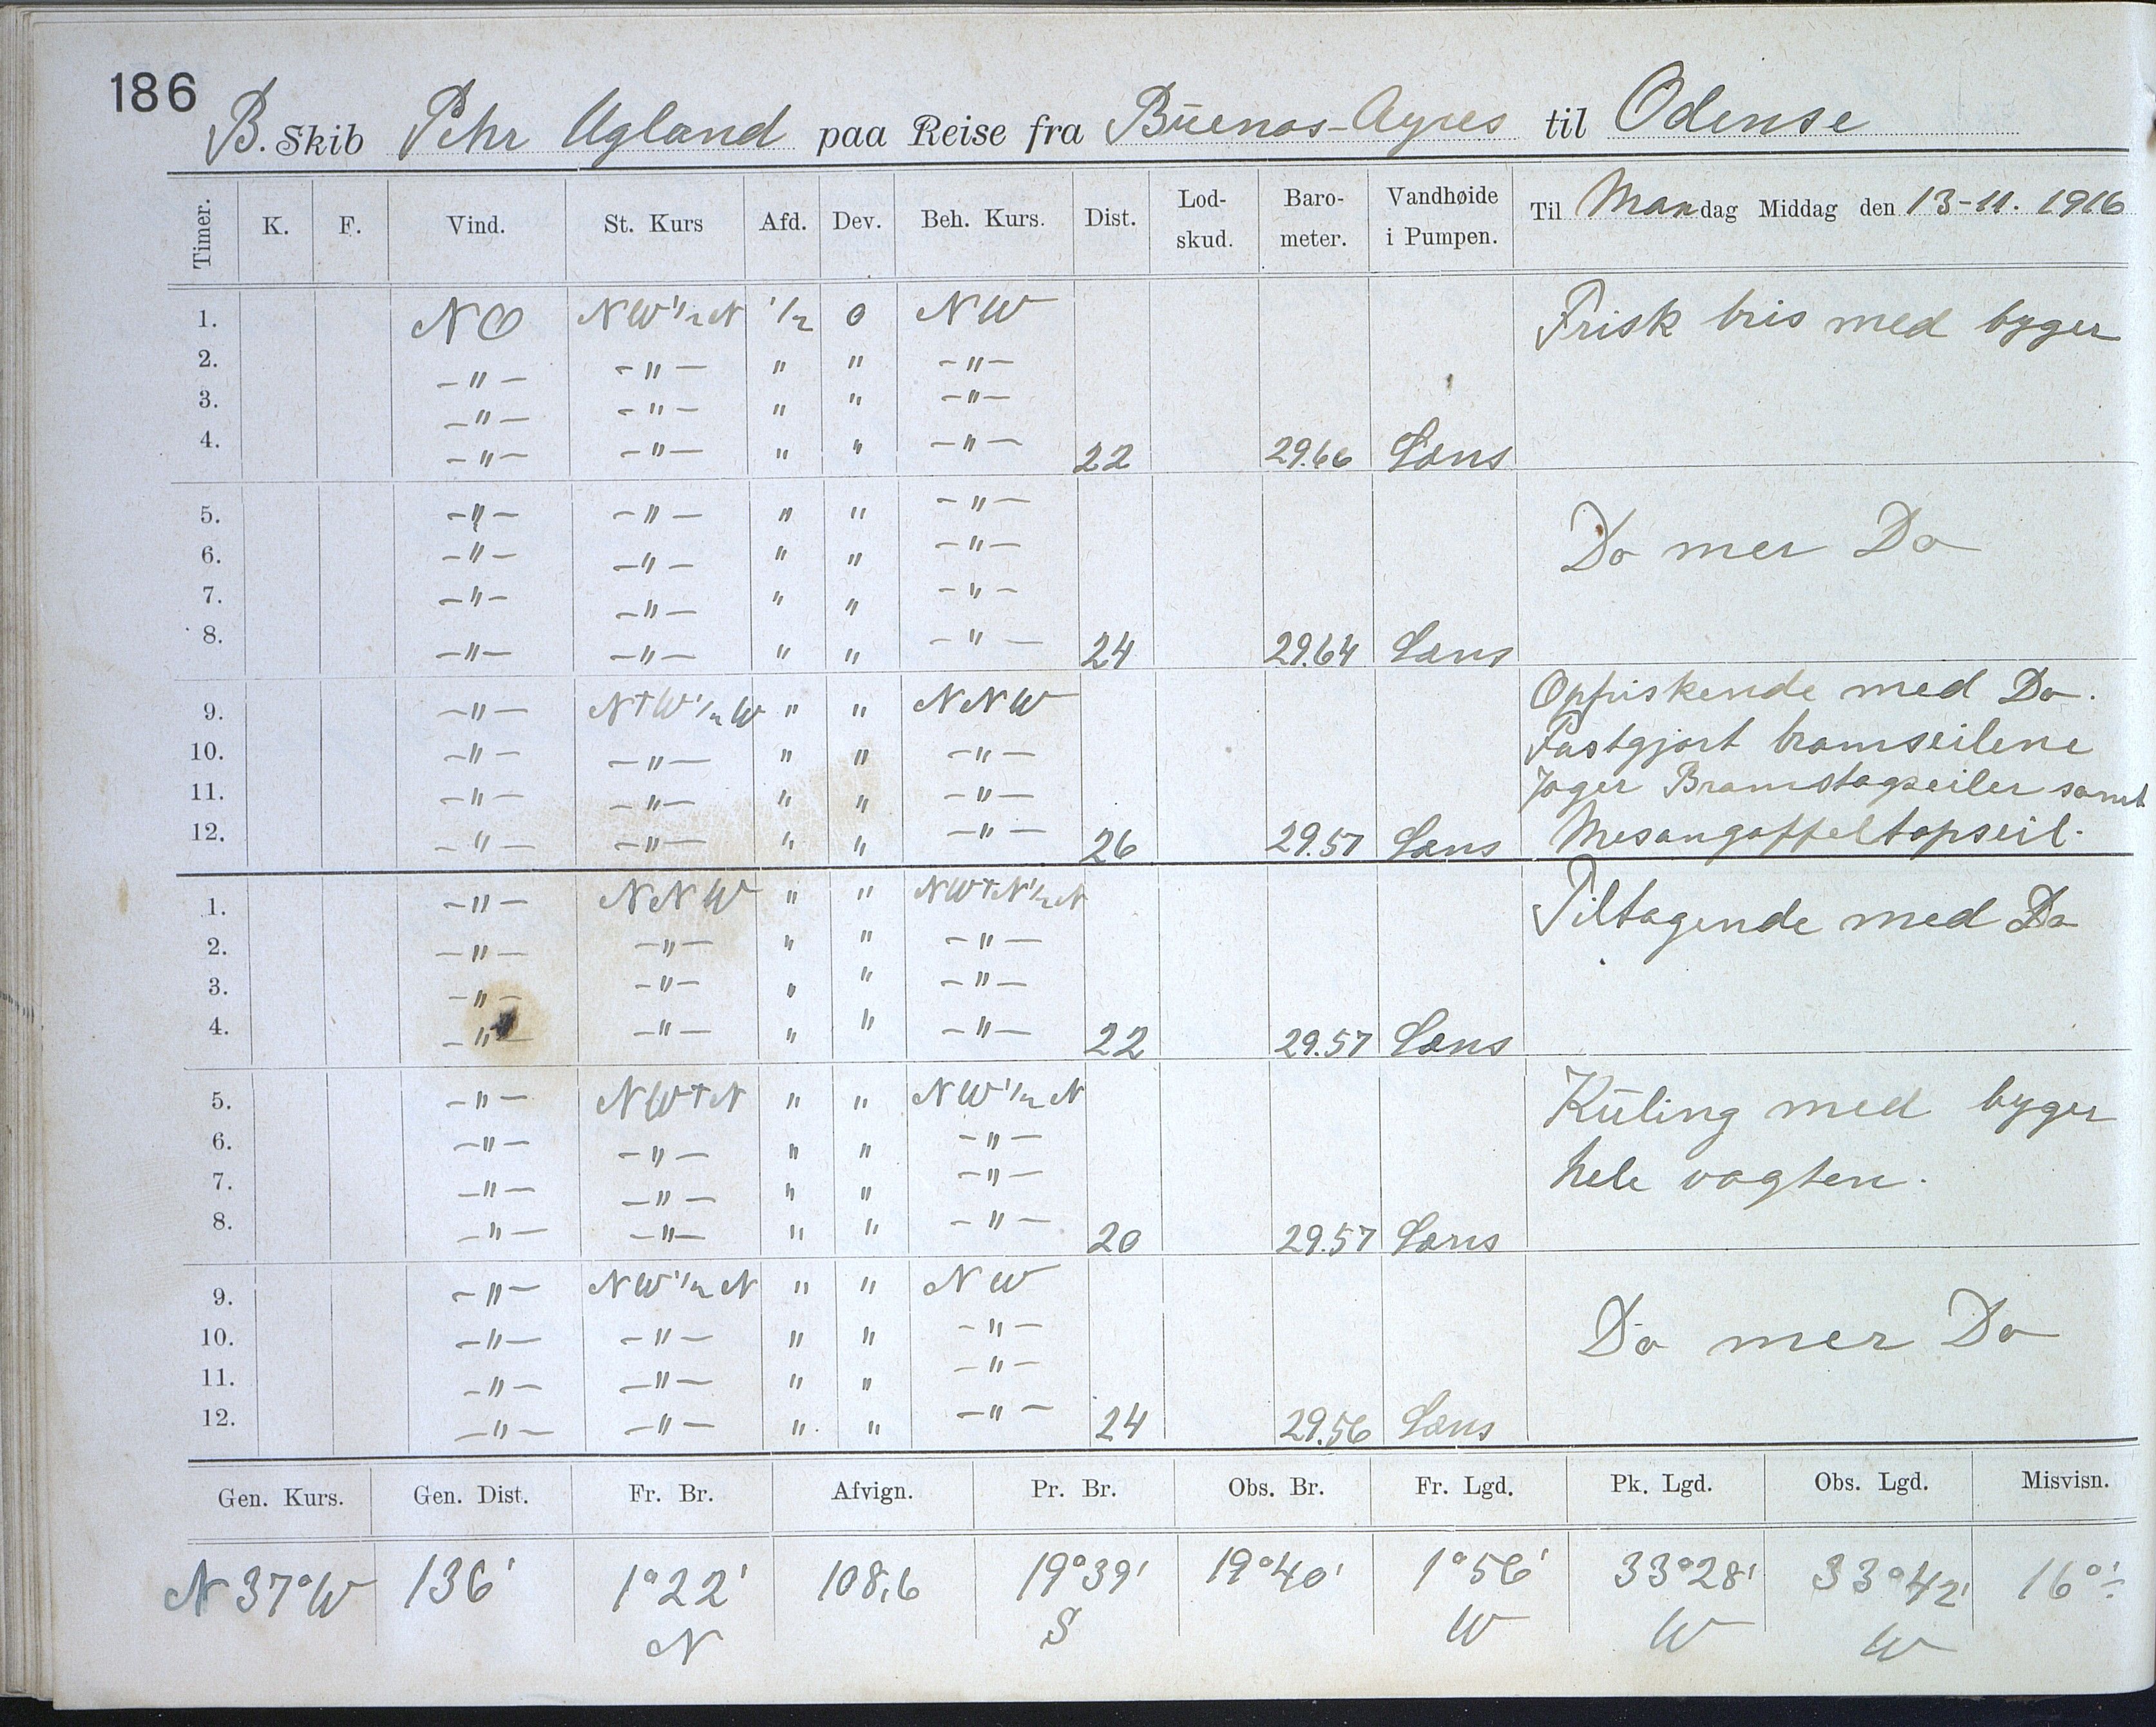 186
B. Skib Pehr Ugland paa Reise fra Buenos-Ayres til Odense
Timer. K. F. Vind. St. Kurs Afd. Dev. Beh. Kurs. Dist. Lod-skud. Baro-meter. Vandhøide i Pumpen. Til Mandag Middag den 13-11. 1916
1. NO NW 1/2 N 1/2 0 NW Frisk bris med byger
2. -"- -"- " " -"-
3. -"- -"- " " -"-
4. -"- -"- " " -"- 22 29.66 Læns
5. -"- -"- " " -"-
6. -"- -"- " " -"- Do mer Do
7. -"- -"- " " -"-
8. -"- -"- " " -"- 24 29.64 Læns
9. -"- N t W 1/2 W " " NNW Opfriskende med Do.
10. -"- -"- " " -"- Fastgjort bramseilene
11. -"- -"- " " -"- Jager Bramstagseiler samt
12. -"- -"- " " -"- 26 29.57 Læns Mesangaffeltopseil.
1. -"- NNW " " NW t N 1/2 N Tiltagende med Do
2. -"- -"- " " -"-
3. -"- -"- " " -"-
4. -"- -"- " " -"- 22 29.57 Læns
5. -"- NW t N " " NW 1/2 N Kuling med byger
6. -"- -"- " " -"-
7. -"- -"- " " -"- hele vagten.
8. -"- -"- " " -"- 20 29.57 Læns
9. -"- NW 1/2 N " " NW
10. -"- -"- " " -"- Do mer Do
11. -"- -"- " " -"-
12. -"- -"- " " -"- 24 29.56 Læns
Gen. Kurs. Gen. Dist. Fr. Br. Afvign. Pr. Br. Obs. Br. Fr. Lgd. Pk. Lgd. Obs. Lgd. Misvisn.
N 37° W 136' 1° 22' 108,6 19° 39' 19° 40' 1° 56' 33° 28' 33° 42' 16° ÷
N S W W W